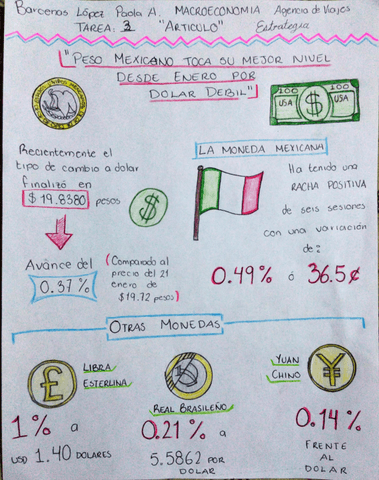 Barcenas López Paola A. MACROECONOMIA Agencia de Viajes
TAREA: 3 "ARTICULO" Estrategia
"PESO MEXICANO TOCA SU MEJOR NIVEL
DESDE ENERO POR
DOLAR DEBIL"
100 100
USA $ USA
Recientemente el
tipo de cambio a dolar
finalizó en
$19.8380 pesos
$
Avance del
0.37%
(Comparado al
precio del 21
enero de
$19.72 pesos)
LA MONEDA MEXICANA
Ha tenido una
RACHA POSITIVA
de seis sesiones
con una variación
de:
0.49% ó 36.5¢
OTRAS MONEDAS
£
LIBRA
ESTERLINA
1% a
USD 1.40 DOLARES
REAL BRASILEÑO
0.21% a
5.5862 POR
DOLAR
YUAN
CHINO
¥
0.14%
FRENTE
AL
DOLAR